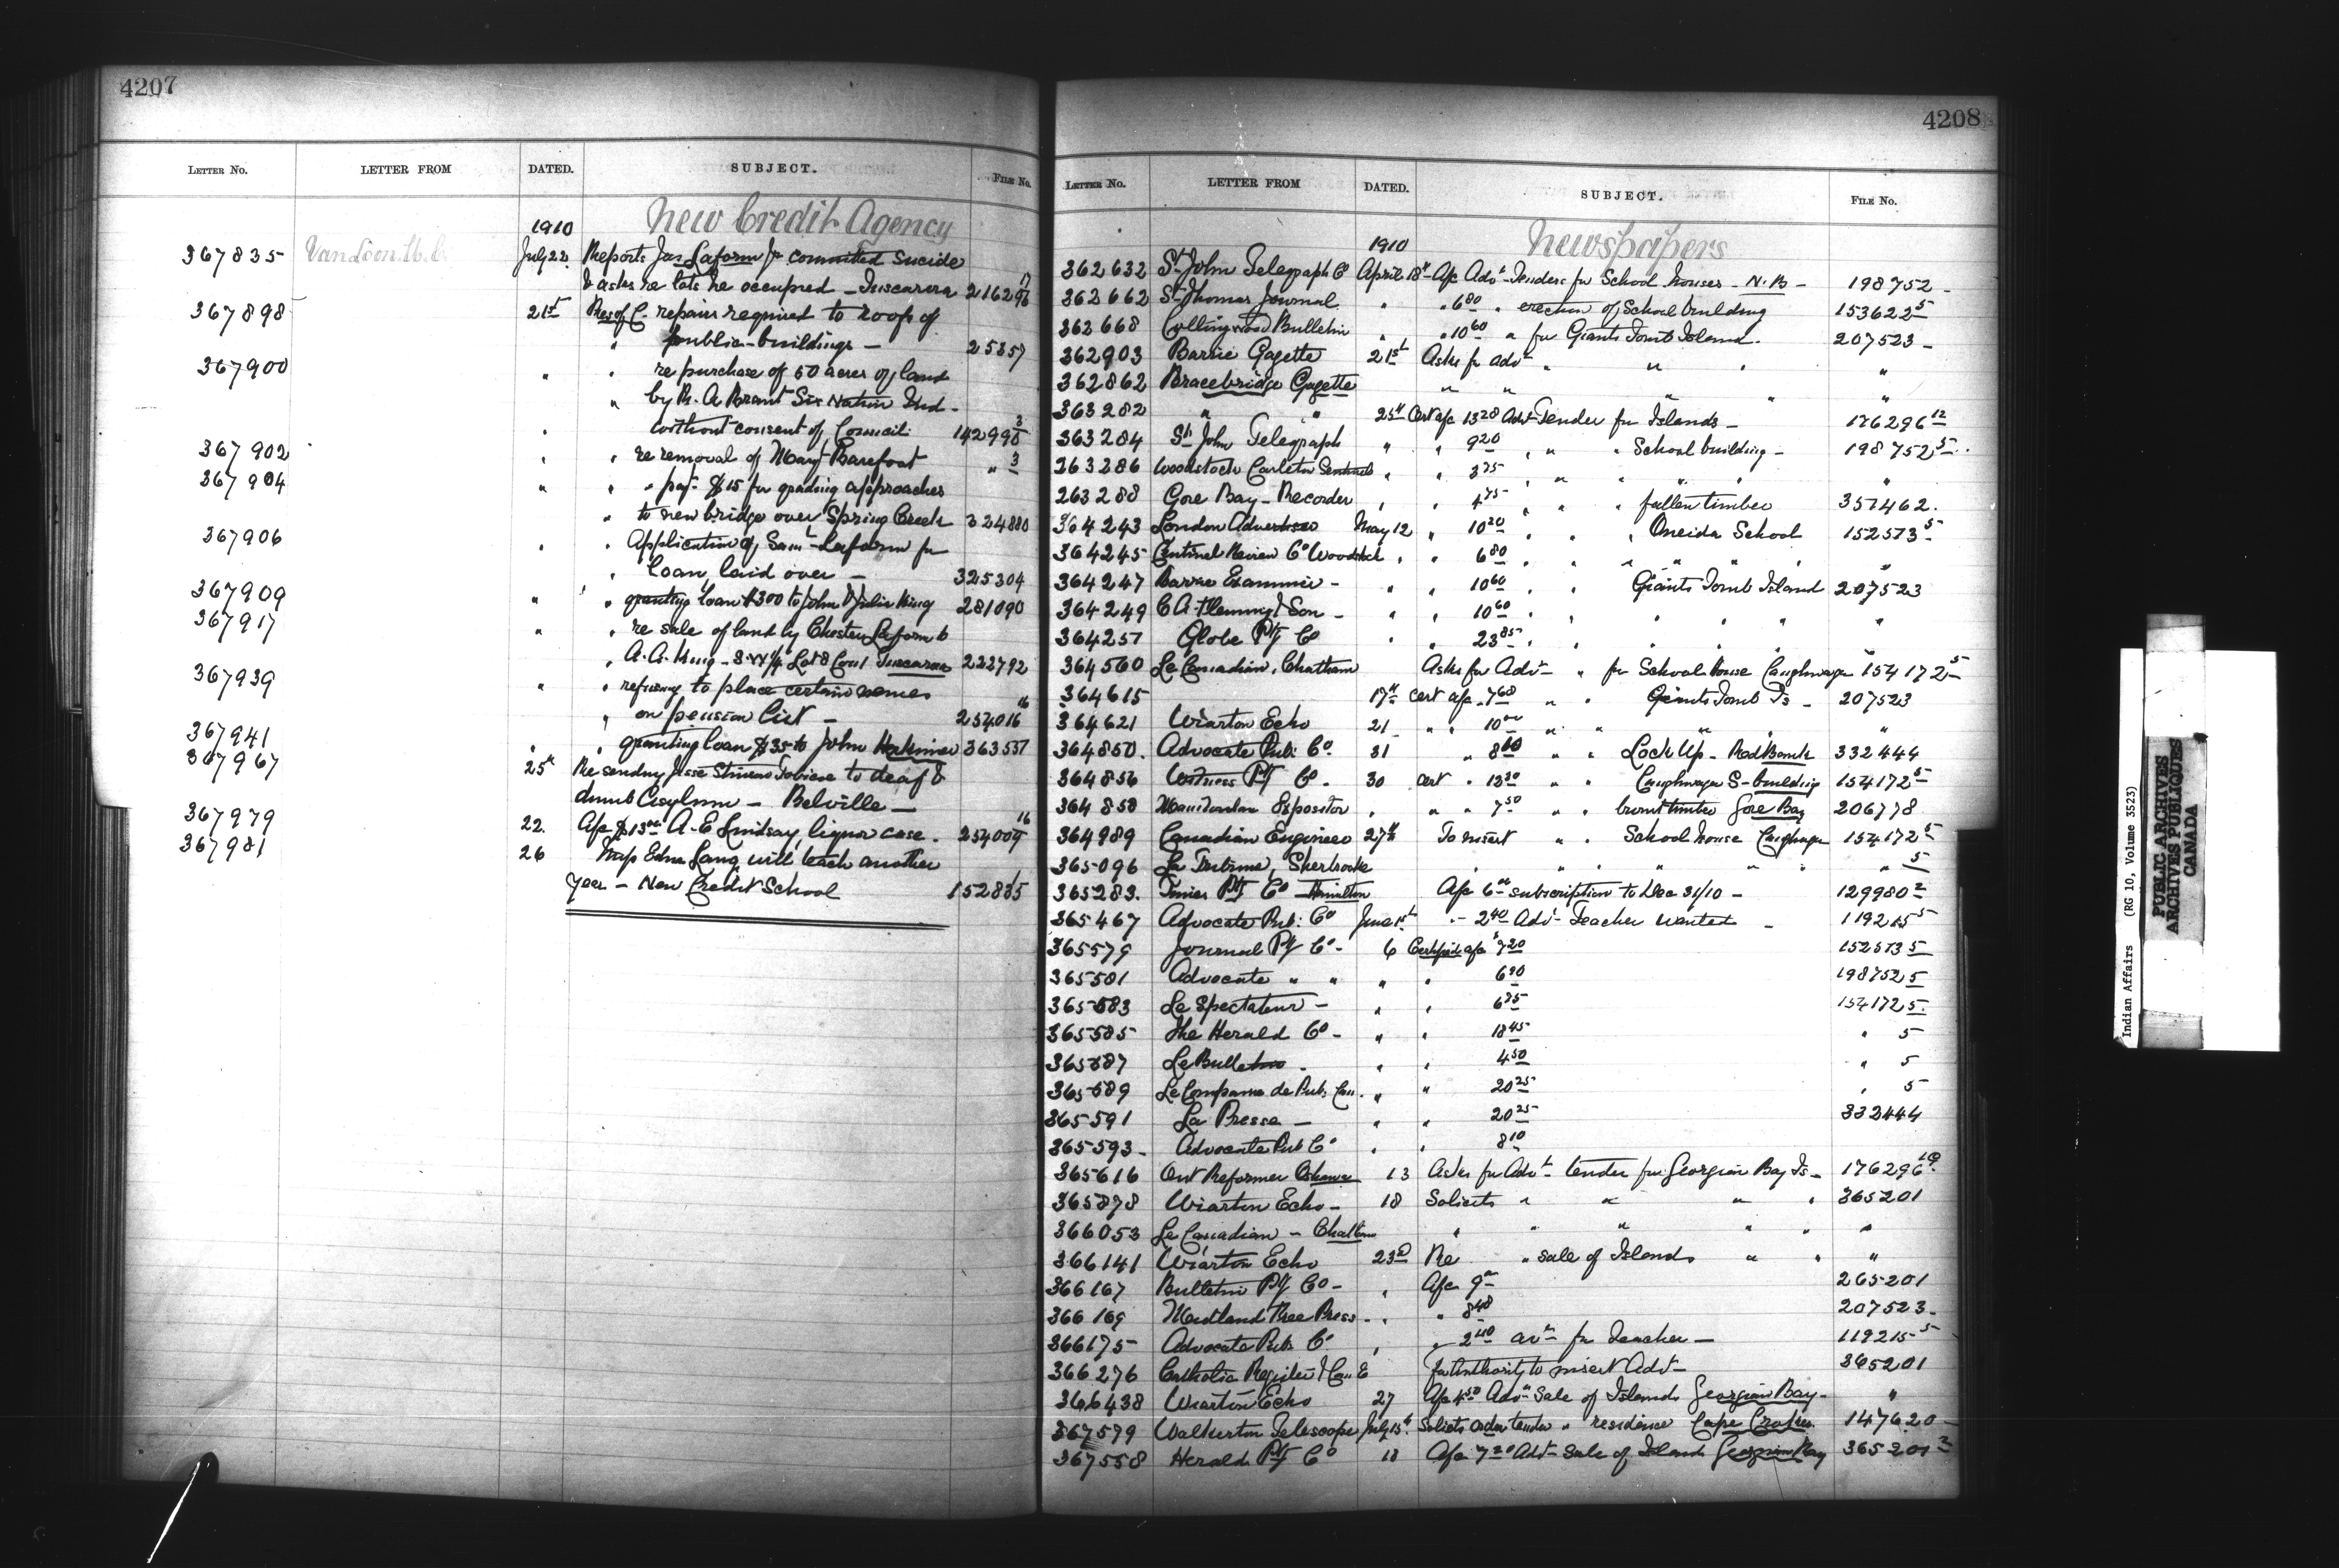 4207
LETTER NO. LETTER FROM DATED. SUBJECT. FILE NO.
New Credit Agency
1910
367835 July 22 Reports Jas Laform Jr committed Suicide
& asks re lots he occupied - Tuscarora 216296 17
367898 21st Res of C. repairs required to roof of
" public-buildings - 25357
367900 " " re purchase of 50 acres of land
" by R. A Brant Six Nation Ind -
" without consent of Council 142998 3
367902 " " re removal of Mary Barefoot " 3
367904 " " " pay. $15 for grading approaches
" to new bridge over Spring Creek 324880
367906 " " Application of Saml Laform for
" Loan, laid over - 325304
367909 " " granting loan $300 to John & Julia King 281090
367917 " " re sale of land by Chester Laform to
" A. A. King - S.W ¼ Lot 8 Con 1 Tuscarora 222792
367939 " " refusing to place certain names
" on pension list - 254016 16
367941 " " granting loan $35 to John 363537
367967 25th Re sending Jesse to deaf &
dumb Asylum - Belville -
367979 22. A/c $13 00 A. E Lindsay, liquor case. 254009 16
367981 26 Miss Edna Lang will teach another
year - New Credit School 152835 1
4208
LETTER NO. LETTER FROM DATED. SUBJECT. FILE NO.
Newspapers
1910
362632 St John Telegraph Co April 18th A/c Advt Tenders for School houses - N.B - 198752 -
362662 St Thomas Journal " " 6 80 " erection of School building 153622 5
362668 Collingwood Bulletin " " 10 60 " for Giants Tomb Island. 207523 -
362903 Barrie Gazette 21st Asks for advt " " " "
362862 Bracebridge Gazette " " " " "
363282 " " 25th Cert a/c 13 28 Advt Tender for Islands - 176296 12
363284 St John Telegraph " " 9 20 " " " School building - 198752 5
263286 Woodstock Carleton Sentinel " " 3 75 " " " " "
263288 Gore Bay - Recorder " " 4 75 " " " fallen timber 357462.
364243 London Advertiser May 12 " 10 20 " " " Oneida School 152573 5
364245 Sentinel Review Co Woodstock " " 6 80 " " " " "
364247 Barrie Examiner - " " 10 60 " " Giants Tomb Island 207523
364249 C A Fleming & Son - " " 10 60 " " " " "
364257 Globe Ptg Co " " 23 85 " " " " "
364560 Le Canadian, Chatham Asks for Advt " for School house Caughnawaga 154172 5
364615 17th Cert a/c 7 68 " " Giants Tomb Is - 207523
364621 Wiarton Echo 21 " " 10 00 " " " " "
364850. Advocate Pub: Co. 31 " 8 80 " " Lock Up - Red Bank 332444
364856 Witness Ptg Co. 30 Cert " 13 20 " " Caughnawaga S- building 154172 5
364858 Manitoulin Expositor " " " 7 50 " " burnt timber Gore Bay 206778
364989 Canadian Engineer 27th To insert " " School house Caughnawaga 154172 5
365096 La Tribune, Sherbrooke " " " " " 5
365283. Times Ptg Co - Hamilton A/c 6 00 subscription to Dec 31/10 - 129980 2
365467 Advocate Pub: Co June 1st " 2 40 Advt Teacher wanted - 119215 5
365579 Journal Ptg Co - 6 Certified a/c $7 20 152573 5
365581 Advocate " " " " 6 90 198752 5
365583 Le Spectateur - " " 6 75 154172 5
365585 The Herald Co - " " 18 45 " 5
365587 Le Bulletin - " " 4 50 " 5
365589 La Compagnie de Pub. Can. " " 20 25 " 5
365591 La Presse - " " 20 25 332444
365593 - Advocate Pub Co " " 8 10
365616 Ont Reformer Oshawa 13 Asks for Advt tender for Georgian Bay Is - 176296 12
365878 Wiarton Echo - 18 Solicits " " " " 365201
366053 Le Canadian - Chatham " " " " "
366141 Wiarton Echo 23rd Re " sale of Islands " " "
366167 Bulletin Ptg Co - " A/c 9 00 265201
366169 Midland Free Press - " " 8 48 207523 -
366175 Advocate Pub. Co " " 2 40 advt for Teacher - 119215 5
366276 Catholic Register & Can. E for Authority to insert Advt 365201
366438 Wiarton Echo 27 A/c 4 50 Advt Sale of Islands Georgian Bay - "
367579 Walkerton Telescope July 15th Solicits order tender " residence Cape Croker 147620 -
367558 Herald Ptg Co 18 A/c 7 20 Advt Sale of Island Georgian Bay 365201 2
Indian Affairs (RG 10, Volume 3523)
PUBLIC ARCHIVES
ARCHIVES PUBLIQUES
CANADA